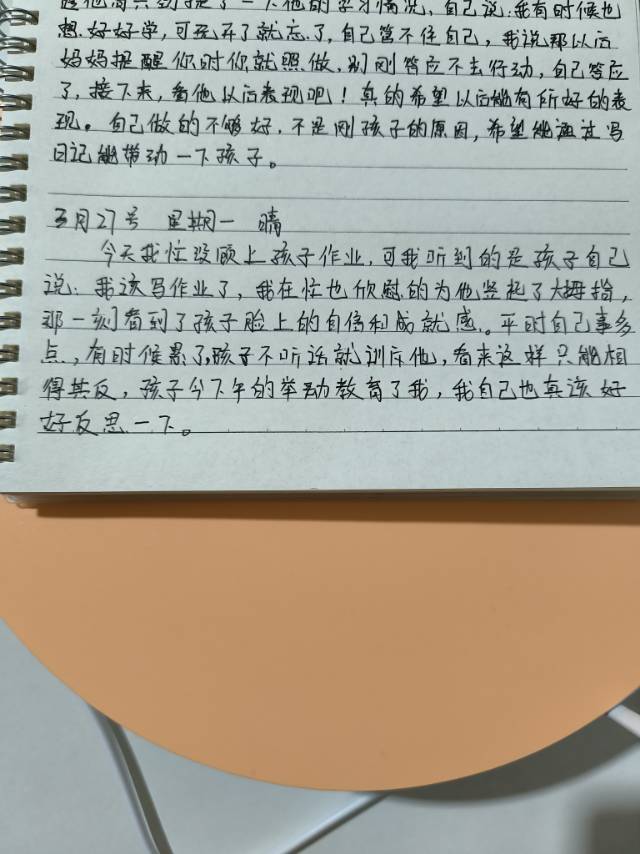 了一下他的学习情况，自己说：我有时候也
想好好学，可玩开了就忘了，自己管不住自己，我说那以后
妈妈提醒你时你就照做，别刚答应不去行动，自己答应
了，接下来，看他以后表现吧！真的希望以后能有所好的表
现。自己做的不够好，不是刚孩子的原因，希望能通过写
日记能带动一下孩子。
五月27号 星期一 晴
今天我忙没顾上孩子作业，可我听到的是孩子自己
说：我该写作业了，我在忙也欣慰的为他竖起了大拇指，
那一刻看到了孩子脸上的自信和成就感。平时自己事多
点，有时候累了，孩子不听话就训斥他，看来这样只能相
得其反，孩子今下午的举动教育了我，我自己也真该好
好反思一下。